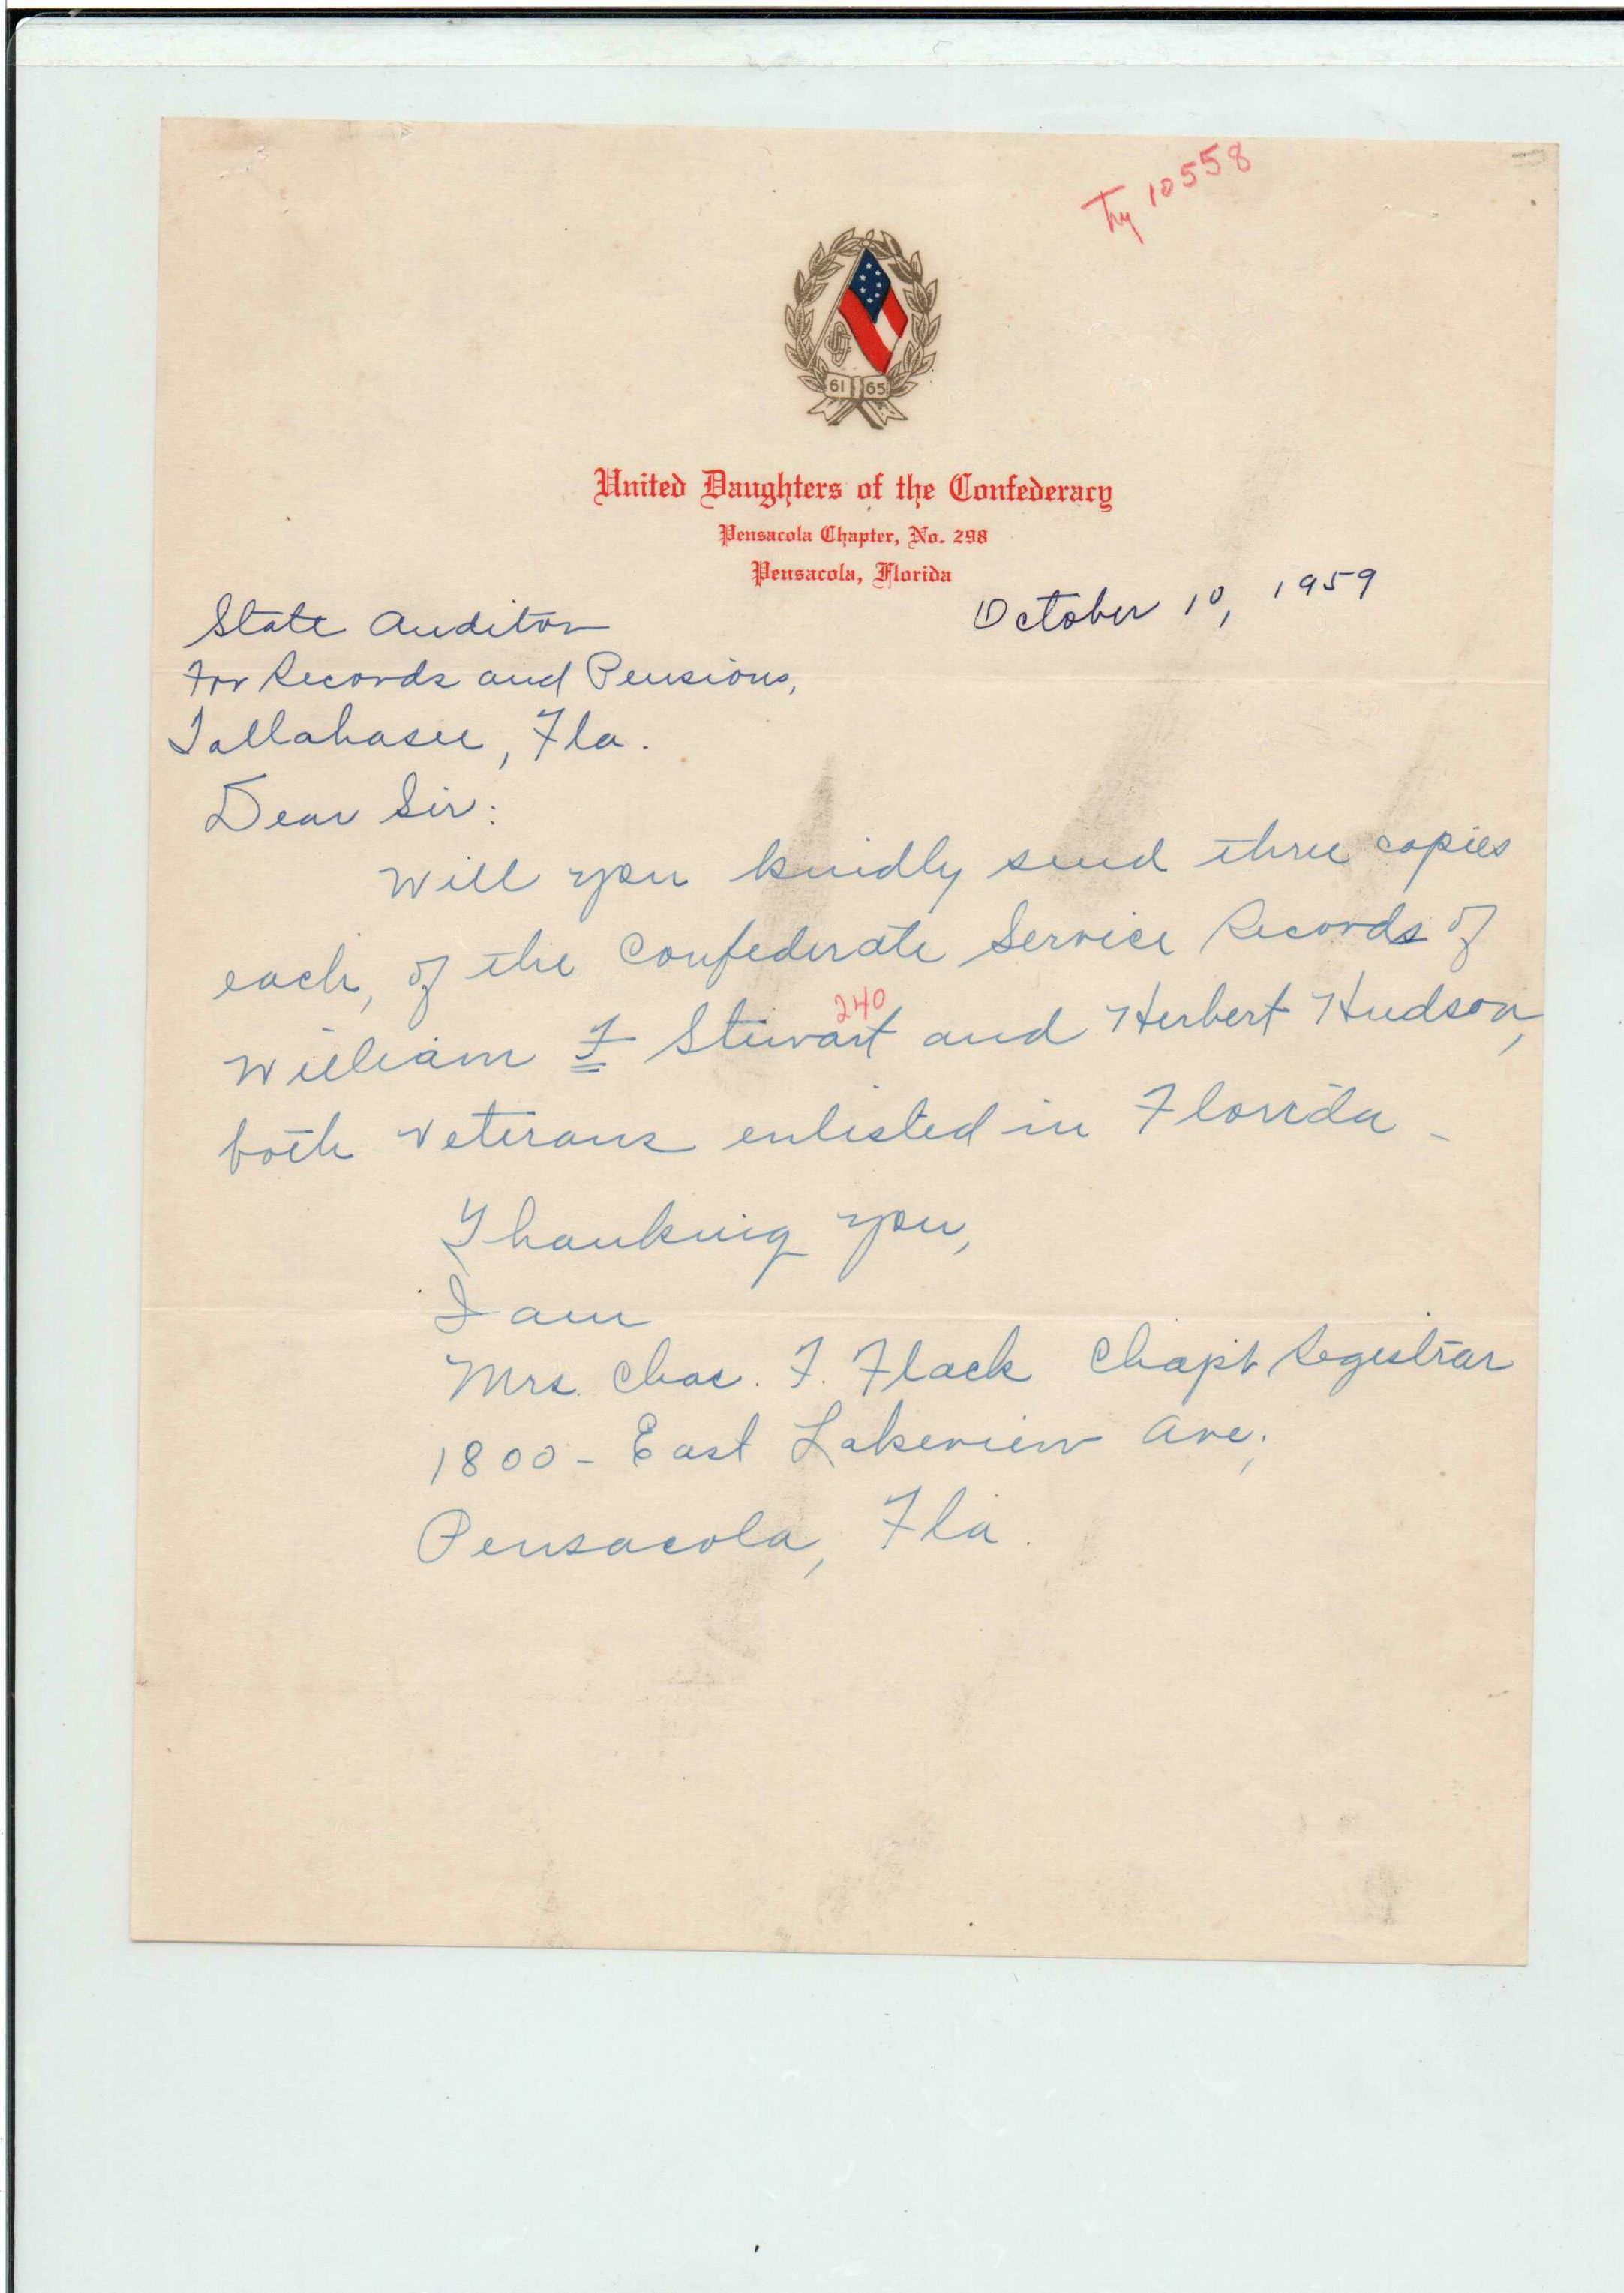 Try 10558
61 65
United Daughters of the Confederacy
Pensacola Chapter, No. 298
Pensacola, Florida
October 10, 1959
State Auditor
For Records and Pensions,
Tallahasee, Fla.
Dear Sir:
Will you kindly send three copies
each, of the Confederate Service Records of
240
William F Stewart and Herbert Hudson,
both veterans enlisted in Florida -
Thanking you,
I am
Mrs. Chas. F. Flack Chapt Registrar
1800 - East Lakeview Ave.,
Pensacola, Fla.